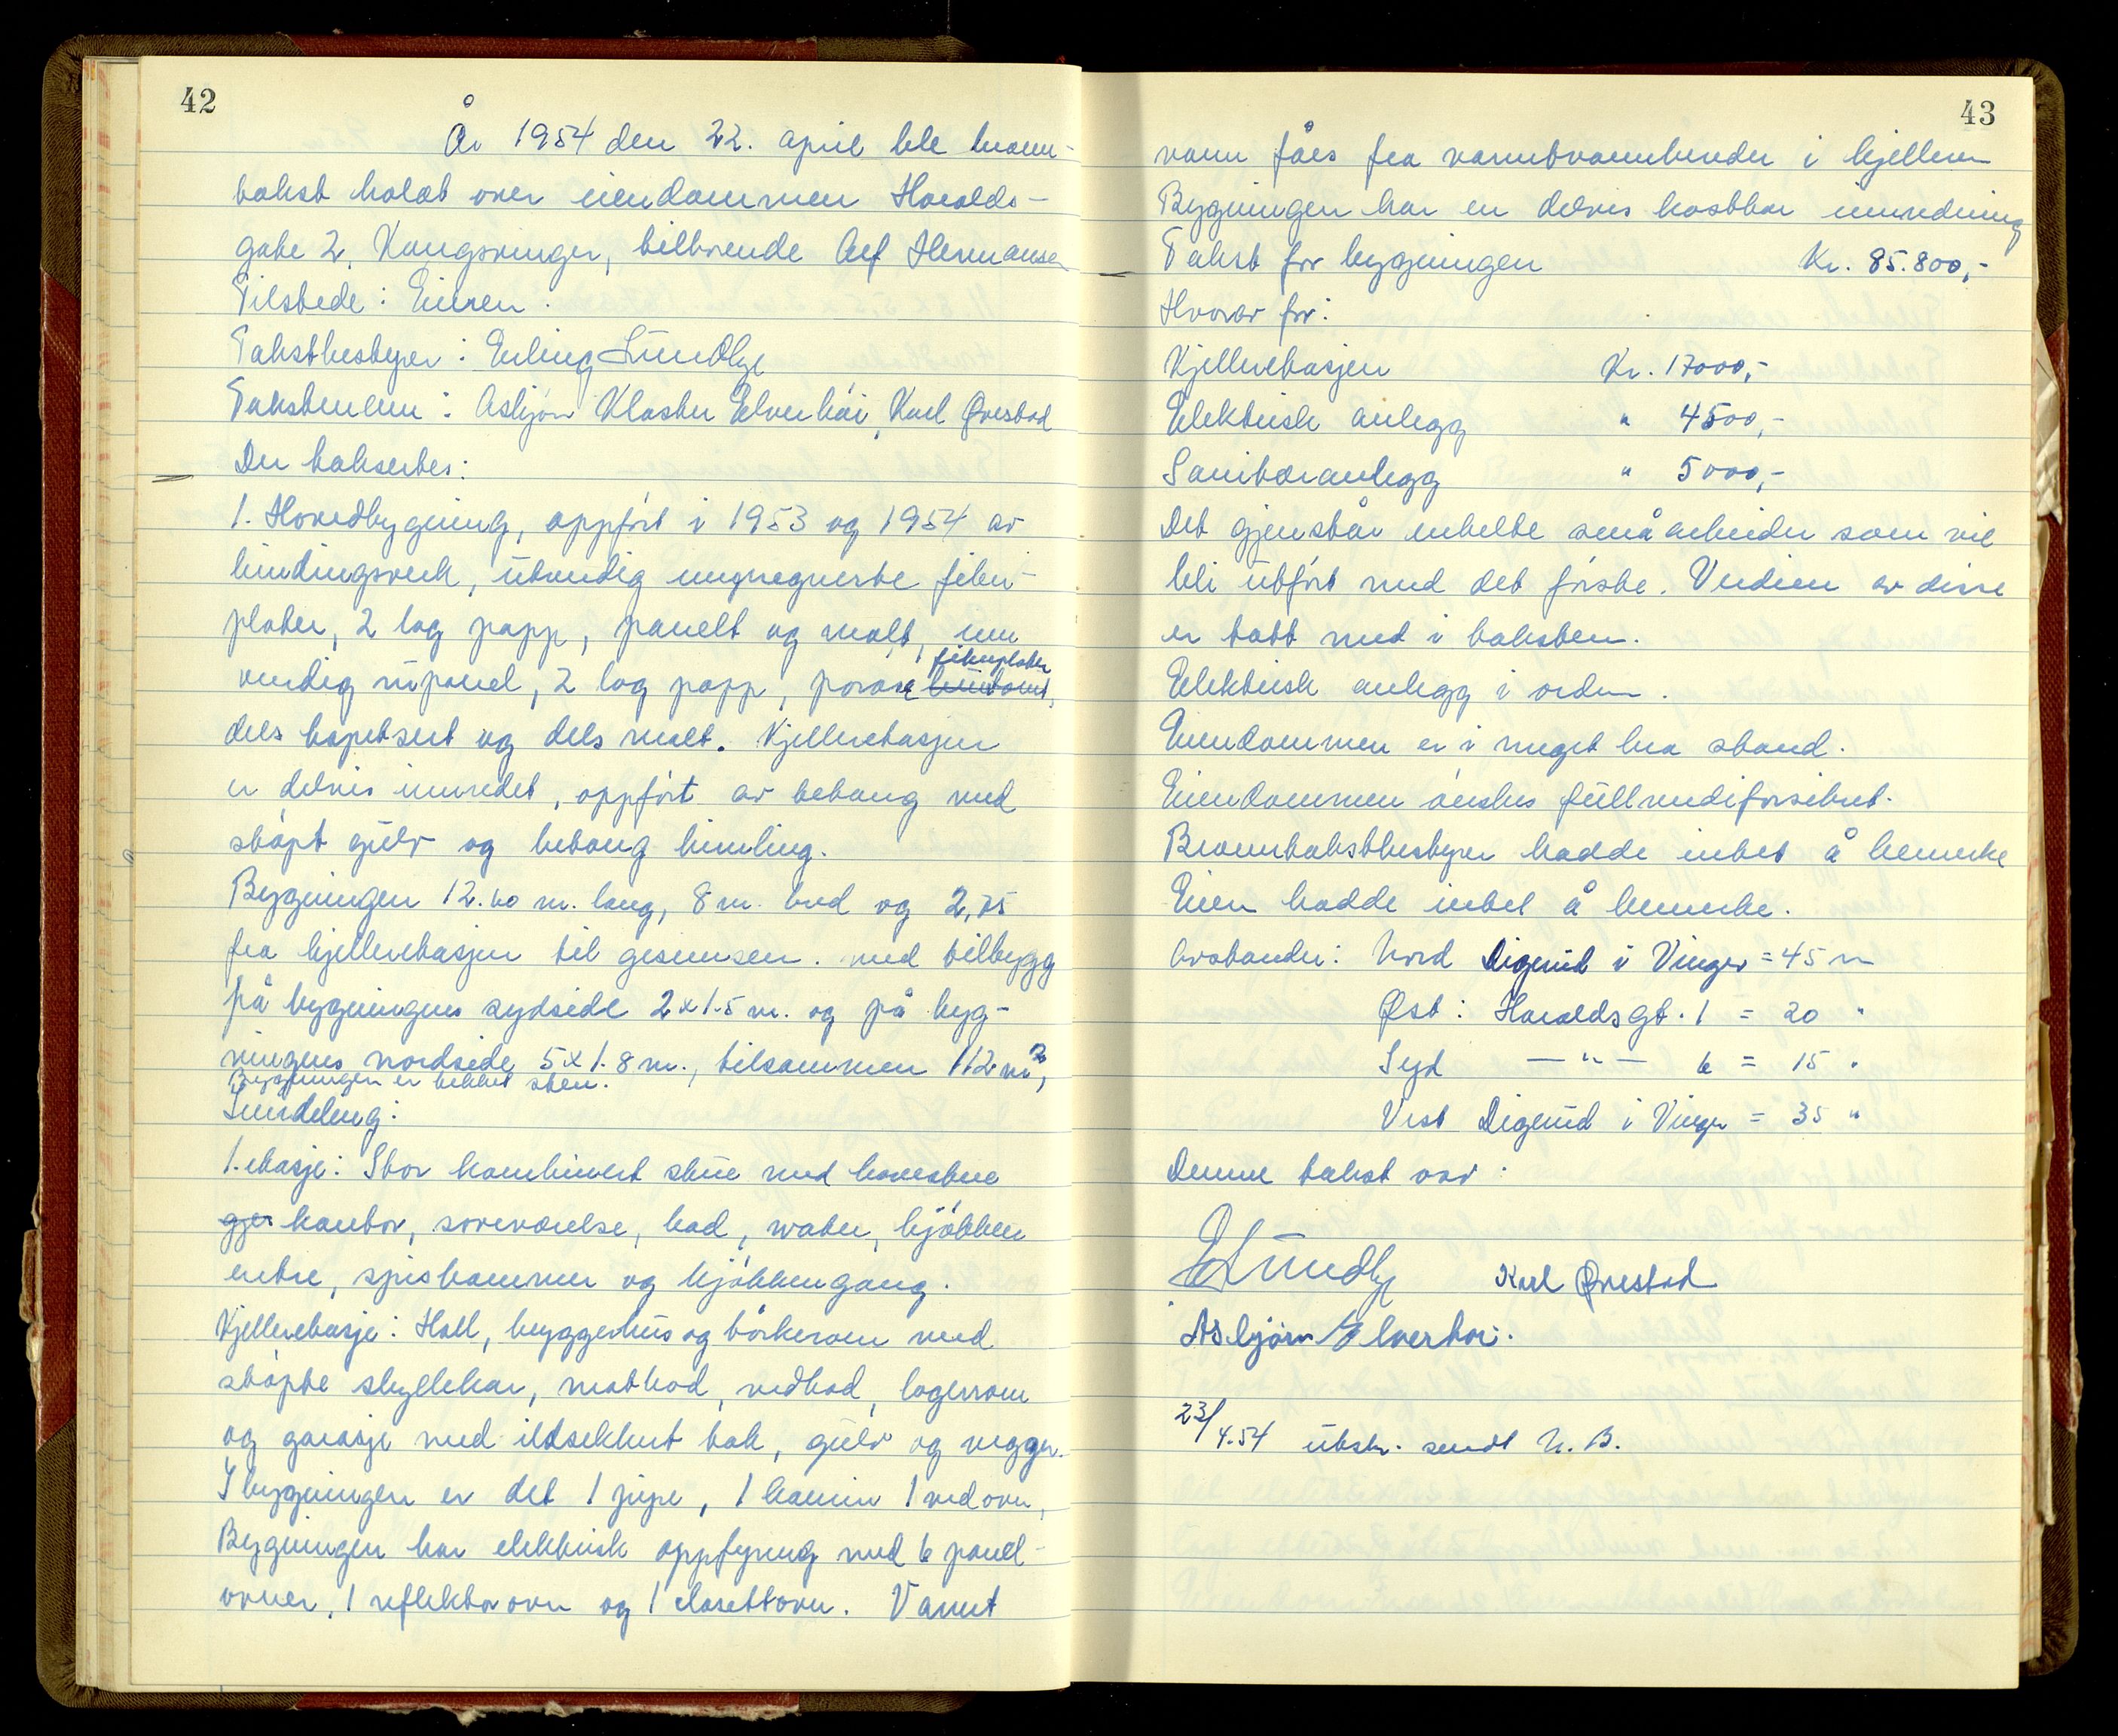 42
År 1954 den 22. april ble brann-
takst holdt over eiendommen Haralds-
gate 2, Kongsvinger, tilhørende Alf Hermansen
Tilstede: Eieren.
Takstbestyrer: Erling Lundby
Takstmenn: Asbjørn Kloster Elverhøi, Karl Øvestad
Der taksertes:
1. Hovedbygning, oppført i 1953 og 1954 av
bindingsverk, utvendig impregnerte fiber-
plater, 2 lag papp, panelt og malt, inn
fiberplater
vendig rupanel, 2 lag papp, porøse
dels tapetsert og dels malt. Kjelleretasjen
er delvis innredet, oppført av betong med
støpt gulv og betong himling.
Bygningen 12.60 m. lang, 8 m. bred og 2,75
fra kjelleretasjen til gesimsen. med tilbygg
på bygningens sydside 2x1.5 m. og på byg-
ningens nordside 5x1.8 m., tilsammen 112 m²,
Bygningen er tekket sten.
Inndeling:
1. etasje: Stor kombinert stue med havestue
kontor, soveværelse, bad, water, kjøkken
entre, spiskammer og kjøkkengang.
Kjelleretasje: Hall, bryggerhus og tørkerom med
støpte skyllekar, matbod, vedbod, lagerrom
og garasje med ildsikkert tak, gulv og vegger.
I bygningen er det 1 pipe, 1 kamin 1 vedovn,
Bygningen har elektrisk oppfyring med 6 panel-
ovner, 1 reflektorovn og 1 closettovn. Varmt
43
vann fåes fra varmtvannbereder i kjelleren
Bygningen har en delvis kostbar innredning
Takst for bygningen Kr. 85.800,-
Hvorav for:
Kjelleretasjen Kr. 17000,-
Elektrisk anlegg " 4500,-
Sanitæranlegg " 5000,-
Det gjenstår enkelte småarbeider som vil
bli utført med det første. Verdien av disse
er tatt med i taksten.
Elektrisk anlegg i orden.
Eiendommen er i meget bra stand.
Eiendommen ønskes fullverdiforsikret.
Branntakstbestyrer hadde intet å bemerke
Eieren hadde intet å bemerke.
Avstander: Nord Digerud i Vinger = 45 m
Øst: Haraldsgt. 1 = 20 "
Syd — " — 6 = 15 "
Vest Digerud i Vinger = 35 "
Denne takst var:
E Lundby Karl Øvestad
Asbjørn Elverhøi.
23/4.54 utskr. sendt N. B.